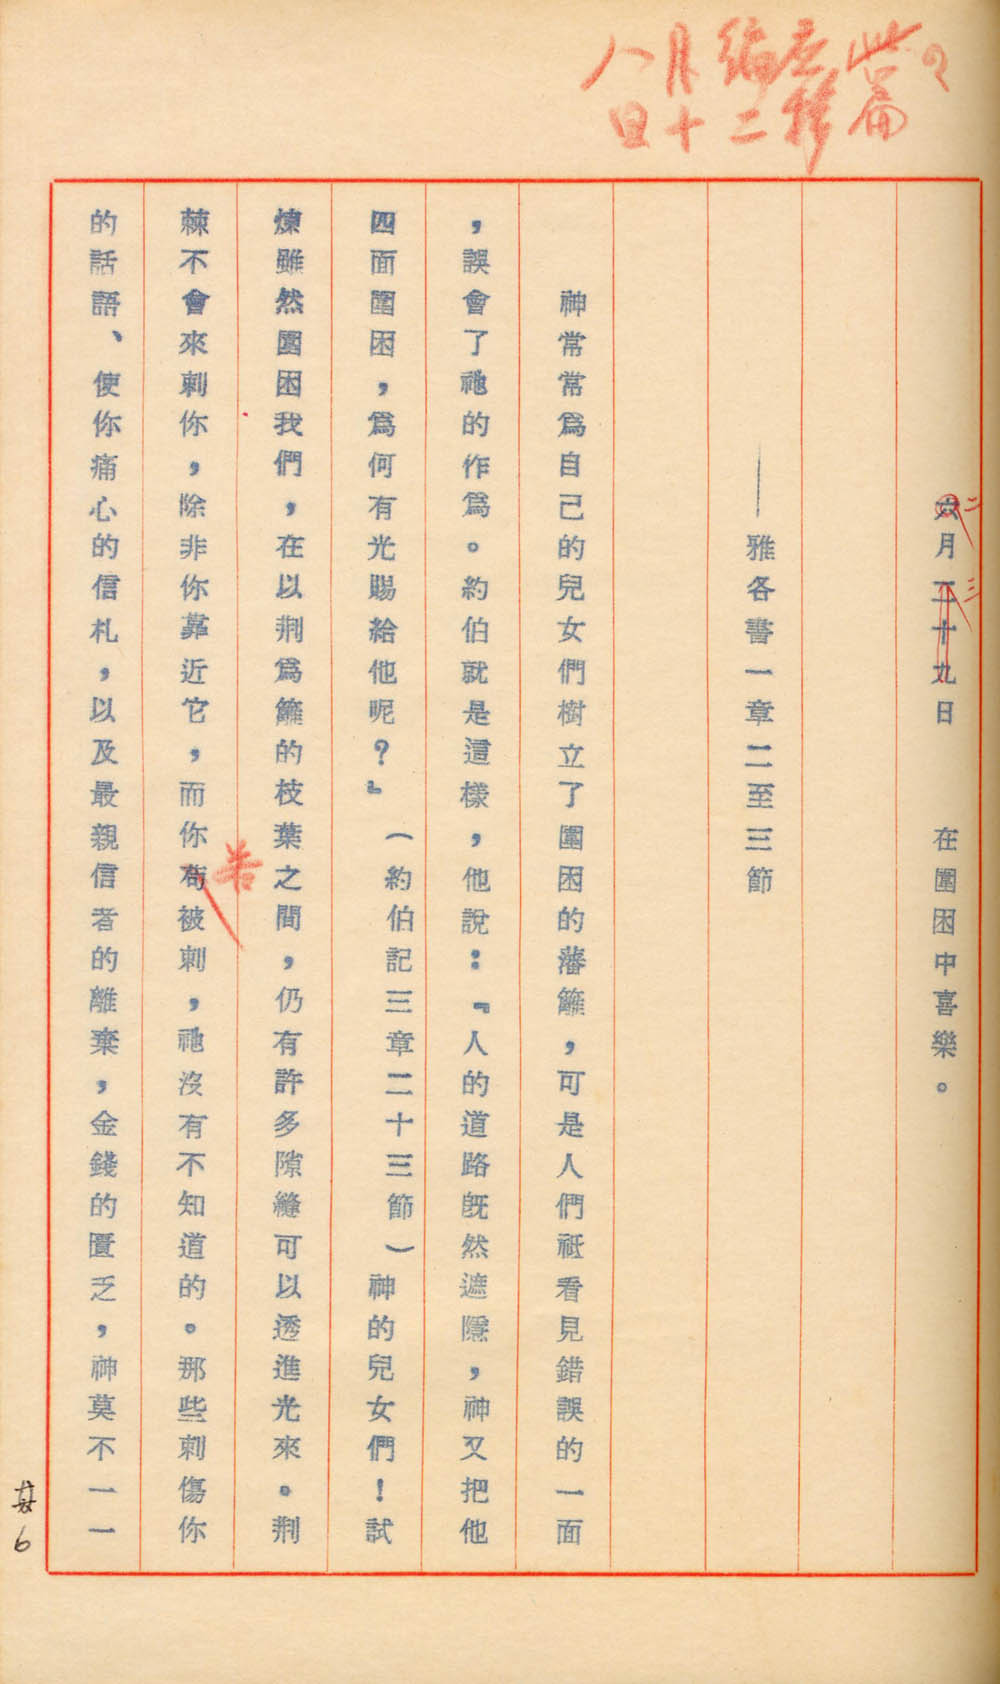 此篇
應移
編二
月十
八日
六月二十九日　在圍困中喜樂。
二
三
——雅各書一章二至三節
神常常爲自己的兒女們樹立了圍困的藩籬，可是人們祗看見錯誤的一面
，誤會了祂的作爲。約伯就是這樣，他說：『人的道路既然遮隱，神又把他
四面圍困，爲何有光賜給他呢？』（約伯記三章二十三節）神的兒女們！試
煉雖然圍困我們，在以荆爲籬的枝葉之間，仍有許多隙縫可以透進光來。荆
棘不會來刺你，除非你靠近它，而你苟被刺，祂沒有不知道的。那些刺傷你
若
的話語、使你痛心的信札，以及最親信者的離棄，金錢的匱乏，神莫不一一
6